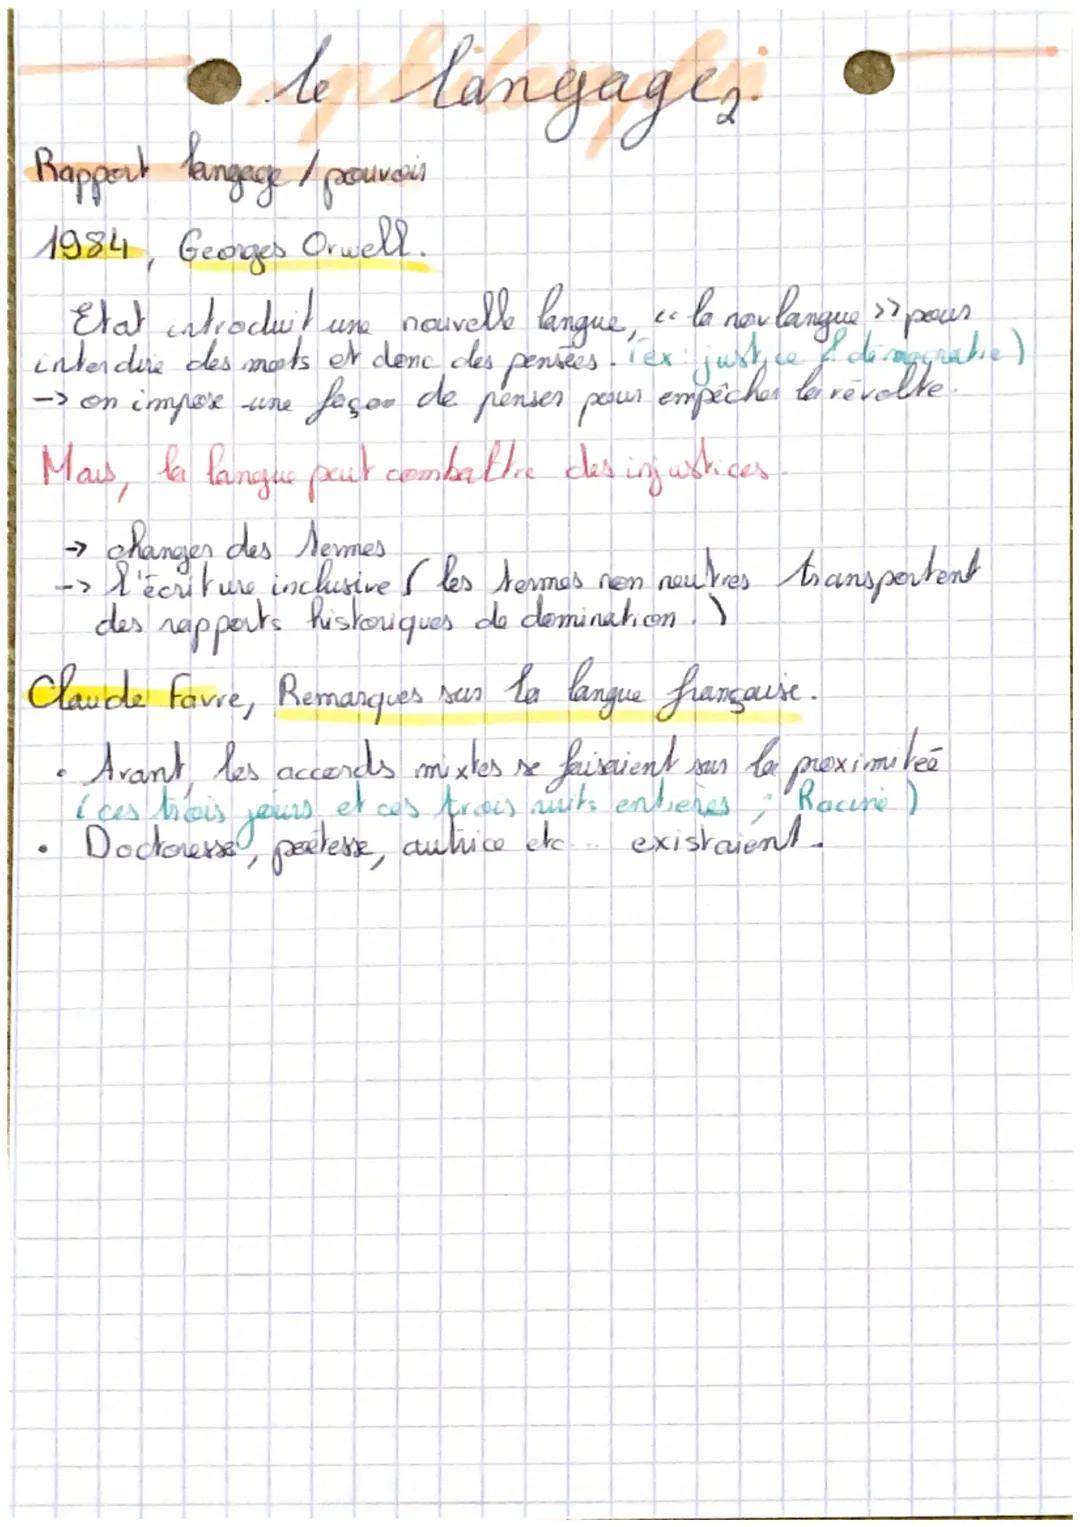 le langage 2.
Rapport langage / pouvoir
1984, Georges Orwell.
Etat introduit une nouvelle langue, "la novlangue" pour
interdire des mots et donc des pensées. (ex: justice & démocratie)
-> on impose une façon de penser pour empêcher la révolte.
Mais, la langue peut combattre des injustices.
-> changer des termes
-> l'écriture inclusive ( les termes non neutres transportent
des rapports historiques de domination.)
Claude Favre, Remarques sur la langue française.
• Avant, les accords mixtes se faisaient sur la proximiteé
(ces trois jours et ces trois nuits entières ; Racine)
• Doctoresse, poétesse, autrice etc... existaient.